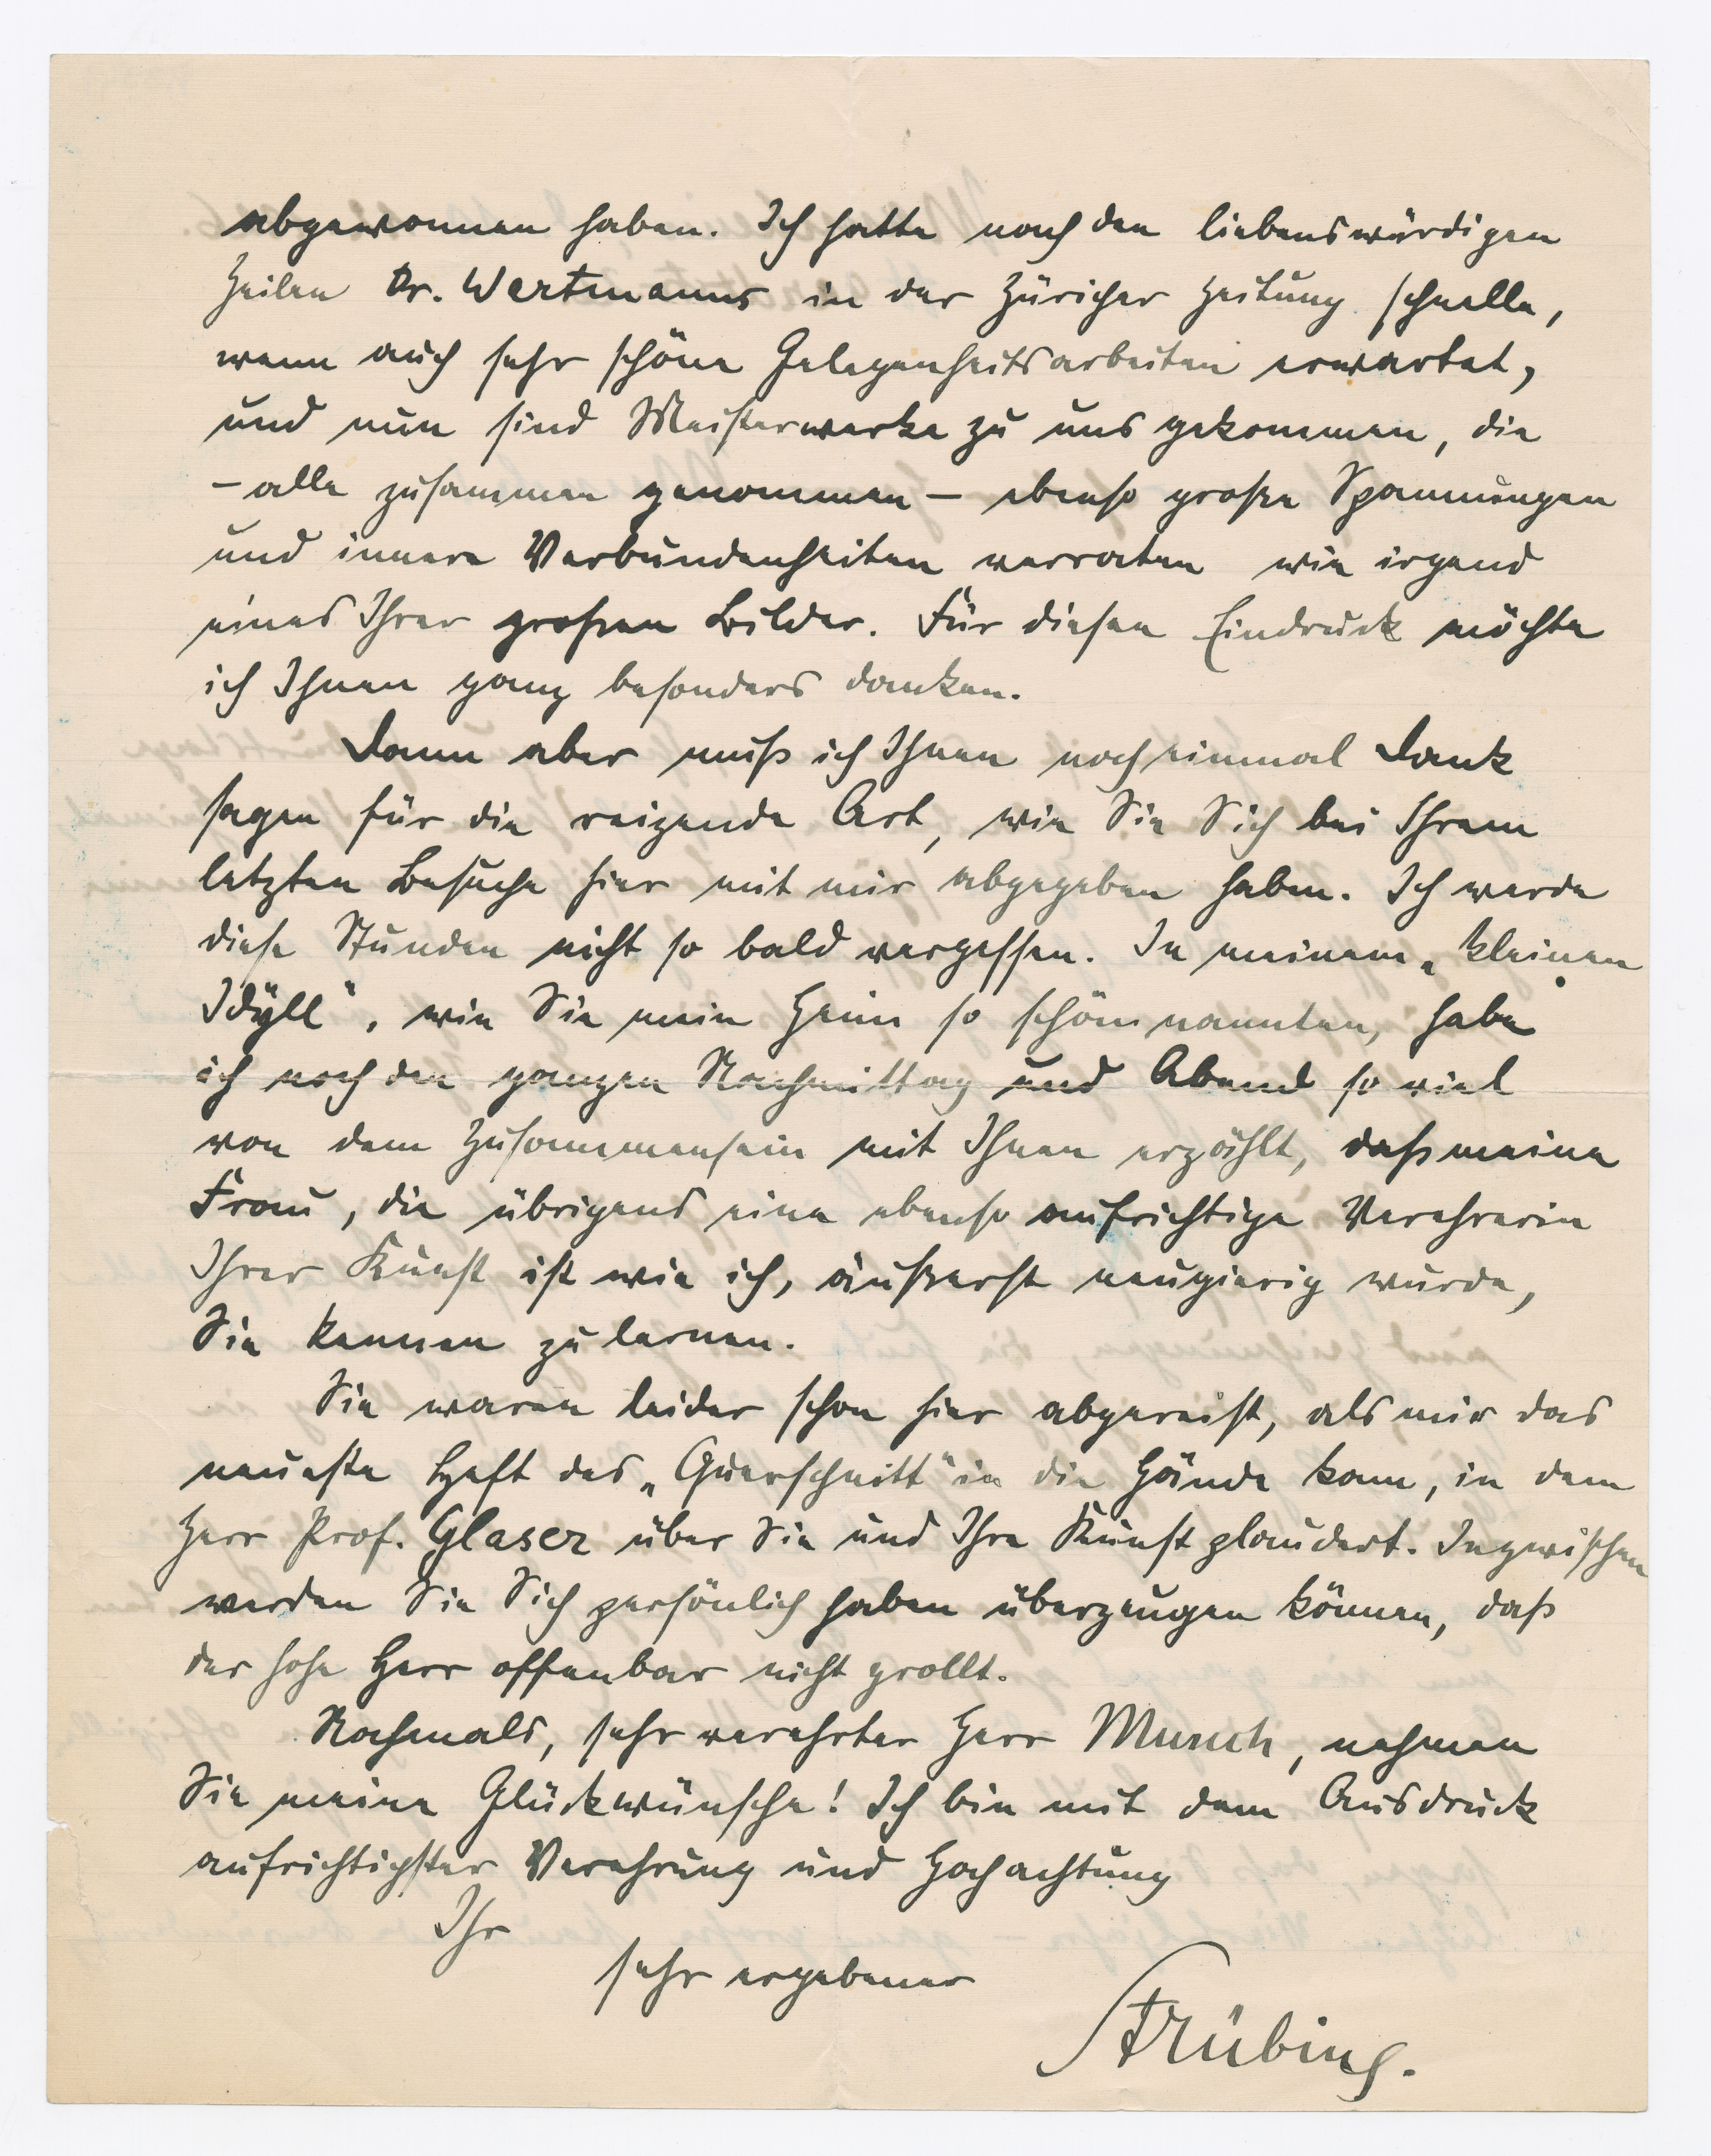 abgewonnen haben. Ich hatte nach den liebenswürdigen
Zeilen Dr. Wertmanns in der Züricher Zeitung schnelle,
wenn auch sehr schöne Gelegenheitsarbeiten erwartet,
und nun sind Meisterwerke zu uns gekommen, die
– alle zusammen genommen – ebenso große Spannungen
und innere Verbundenheiten verraten wie irgend
eines Ihrer großen Bilder. Für diesen Eindruck möchte
ich Ihnen ganz besonders danken.
Dann aber muß ich Ihnen noch einmal Dank
sagen für die reizende Art, wie Sie Sich bei Ihrem
letzten Besuche hier mit mir abgegeben haben. Ich werde
diese Stunden nicht so bald vergessen. In meinem „kleinen
Idyll“, wie Sie mein Heim so schön nannten, habe
ich noch den ganzen Nachmittag und Abend so viel
von dem Zusammensein mit Ihnen erzählt, daß meine
Frau, die übrigens eine ebenso aufrichtige Verehrerin
Ihrer Kunst ist wie ich, äußerst neugierig wurde,
Sie kennen zu lernen.
Sie waren leider schon hier abgereist, als mir das
neueste Heft des „Querschnitt“ in die Hände kam, in dem
Herr Prof. Glaser über Sie und Ihre Kunst plaudert. Inzwischen
werden Sie Sich persönlich haben überzeugen können, daß
der hohe Herr offenbar nicht grollt.
Nochmals, sehr verehrter Herr Munch, nehmen
Sie meine Glückwünsche! Ich bin mit dem Ausdruck
aufrichtigster Verehrung und Hochachtung
Ihr
sehr ergebener
Strübing.